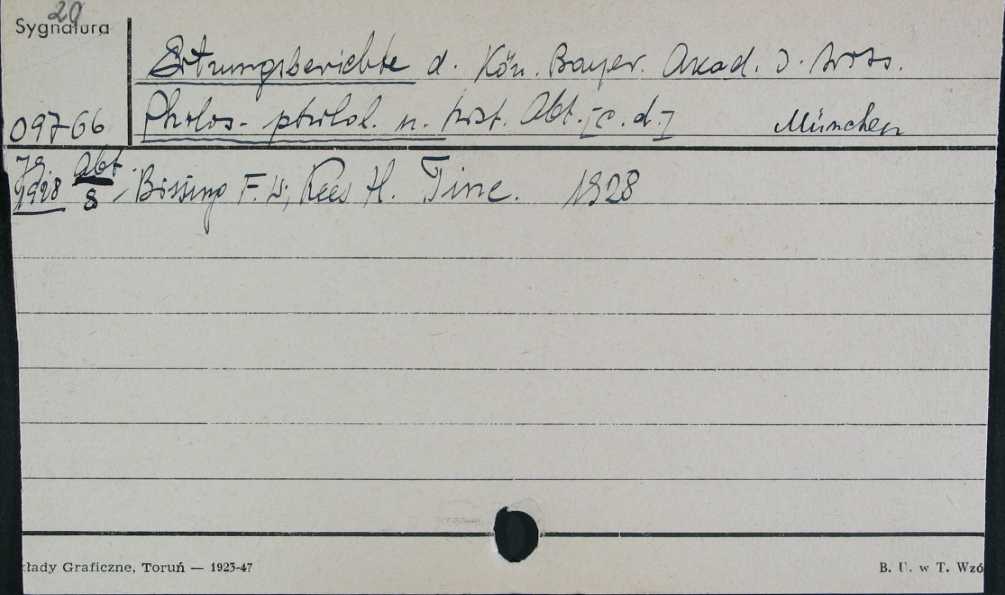 20
Sygnatura
Sitzungsberichte d. Kön. Bayer. Akad. d. Wiss.
09766 Philos.- philol. u. hist. Abt. [c. d.] München
Jg. Abt.
1928 8 Bissing F. W; Kees H. 1928
kłady Graficzne, Toruń — 1923-47
B. U. w T. Wzó